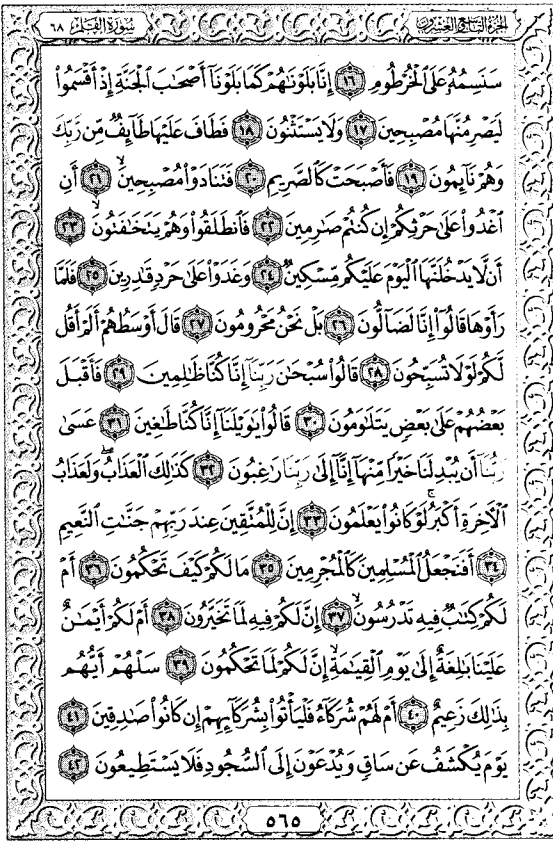 الجزء التاسع والعشرون
سورة القلم ٦٨
سَنَسِمُهُۥ عَلَى ٱلْخُرْطُومِ ١٦ إِنَّا بَلَوْنَٰهُمْ كَمَا بَلَوْنَآ أَصْحَٰبَ ٱلْجَنَّةِ إِذْ أَقْسَمُوا۟
لَيَصْرِمُنَّهَا مُصْبِحِينَ ١٧ وَلَا يَسْتَثْنُونَ ١٨ فَطَافَ عَلَيْهَا طَآئِفٌ مِّن رَّبِّكَ
وَهُمْ نَآئِمُونَ ١٩ فَأَصْبَحَتْ كَٱلصَّرِيمِ ٢٠ فَتَنَادَوْا۟ مُصْبِحِينَ ٢١ أَنِ
ٱغْدُوا۟ عَلَىٰ حَرْثِكُمْ إِن كُنتُمْ صَٰرِمِينَ ٢٢ فَٱنطَلَقُوا۟ وَهُمْ يَتَخَٰفَتُونَ ٢٣
أَن لَّا يَدْخُلَنَّهَا ٱلْيَوْمَ عَلَيْكُم مِّسْكِينٌ ٢٤ وَغَدَوْا۟ عَلَىٰ حَرْدٍ قَٰدِرِينَ ٢٥ فَلَمَّا
رَأَوْهَا قَالُوٓا۟ إِنَّا لَضَآلُّونَ ٢٦ بَلْ نَحْنُ مَحْرُومُونَ ٢٧ قَالَ أَوْسَطُهُمْ أَلَمْ أَقُل
لَّكُمْ لَوْلَا تُسَبِّحُونَ ٢٨ قَالُوا۟ سُبْحَٰنَ رَبِّنَآ إِنَّا كُنَّا ظَٰلِمِينَ ٢٩ فَأَقْبَلَ
بَعْضُهُمْ عَلَىٰ بَعْضٍ يَتَلَٰوَمُونَ ٣٠ قَالُوا۟ يَٰوَيْلَنَآ إِنَّا كُنَّا طَٰغِينَ ٣١ عَسَىٰ
رَبُّنَآ أَن يُبْدِلَنَا خَيْرًا مِّنْهَآ إِنَّآ إِلَىٰ رَبِّنَا رَٰغِبُونَ ٣٢ كَذَٰلِكَ ٱلْعَذَابُ ۖ وَلَعَذَابُ
ٱلْءَاخِرَةِ أَكْبَرُ ۚ لَوْ كَانُوا۟ يَعْلَمُونَ ٣٣ إِنَّ لِلْمُتَّقِينَ عِندَ رَبِّهِمْ جَنَّٰتِ ٱلنَّعِيمِ
٣٤ أَفَنَجْعَلُ ٱلْمُسْلِمِينَ كَٱلْمُجْرِمِينَ ٣٥ مَا لَكُمْ كَيْفَ تَحْكُمُونَ ٣٦ أَمْ
لَكُمْ كِتَٰبٌ فِيهِ تَدْرُسُونَ ٣٧ إِنَّ لَكُمْ فِيهِ لَمَا تَخَيَّرُونَ ٣٨ أَمْ لَكُمْ أَيْمَٰنٌ
عَلَيْنَا بَٰلِغَةٌ إِلَىٰ يَوْمِ ٱلْقِيَٰمَةِ ۙ إِنَّ لَكُمْ لَمَا تَحْكُمُونَ ٣٩ سَلْهُمْ أَيُّهُم
بِذَٰلِكَ زَعِيمٌ ٤٠ أَمْ لَهُمْ شُرَكَآءُ فَلْيَأْتُوا۟ بِشُرَكَآئِهِمْ إِن كَانُوا۟ صَٰدِقِينَ ٤١
يَوْمَ يُكْشَفُ عَن سَاقٍ وَيُدْعَوْنَ إِلَى ٱلسُّجُودِ فَلَا يَسْتَطِيعُونَ ٤٢
٥٦٥